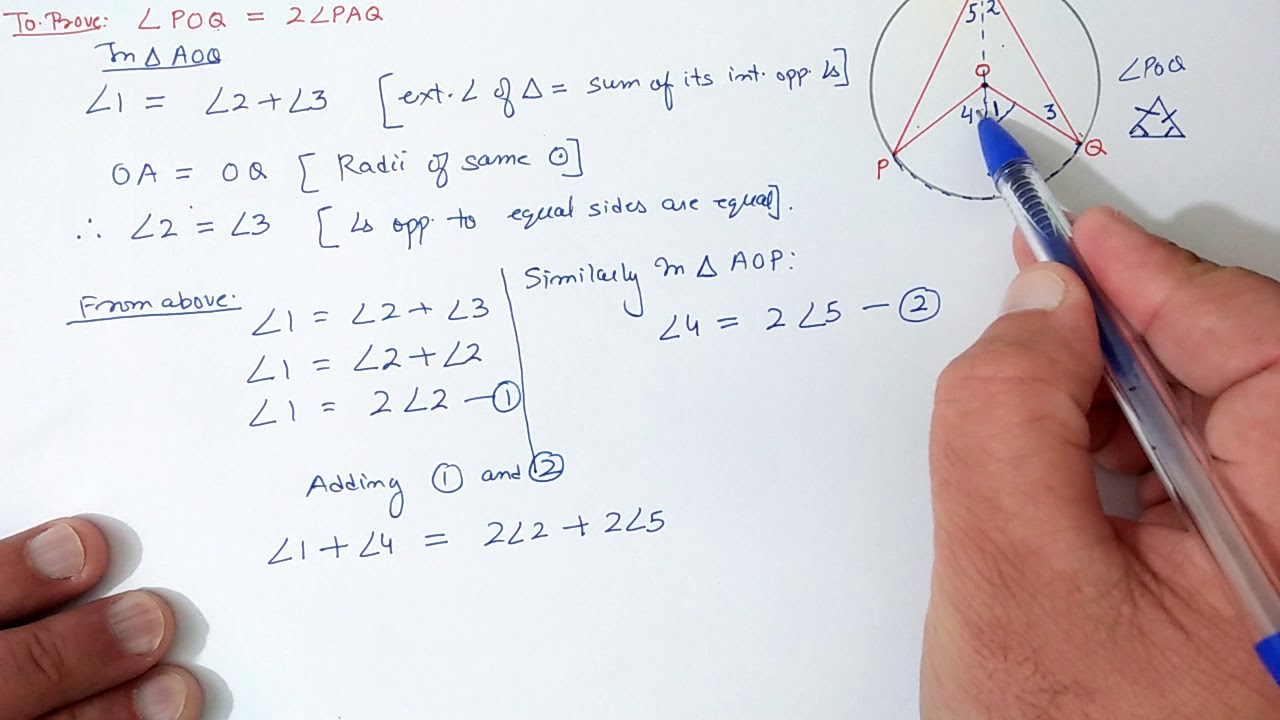 To Prove: ∠POQ = 2∠PAQ
In △ AOQ
∠1 = ∠2+∠3 [ext. ∠ of △ = sum of its int. opp. ∠s]
OA = OQ [Radii of same ⊙]
∴ ∠2 = ∠3 [∠s opp. to equal sides are equal].
From above:
∠1 = ∠2 + ∠3
∠1 = ∠2+∠2
∠1 = 2∠2 — ①
Similarly In △ AOP:
∠4 = 2∠5 — ②
Adding ① and ②
∠1 + ∠4 = 2∠2 + 2∠5
5 2
O
4 1 3
P
Q
∠POQ